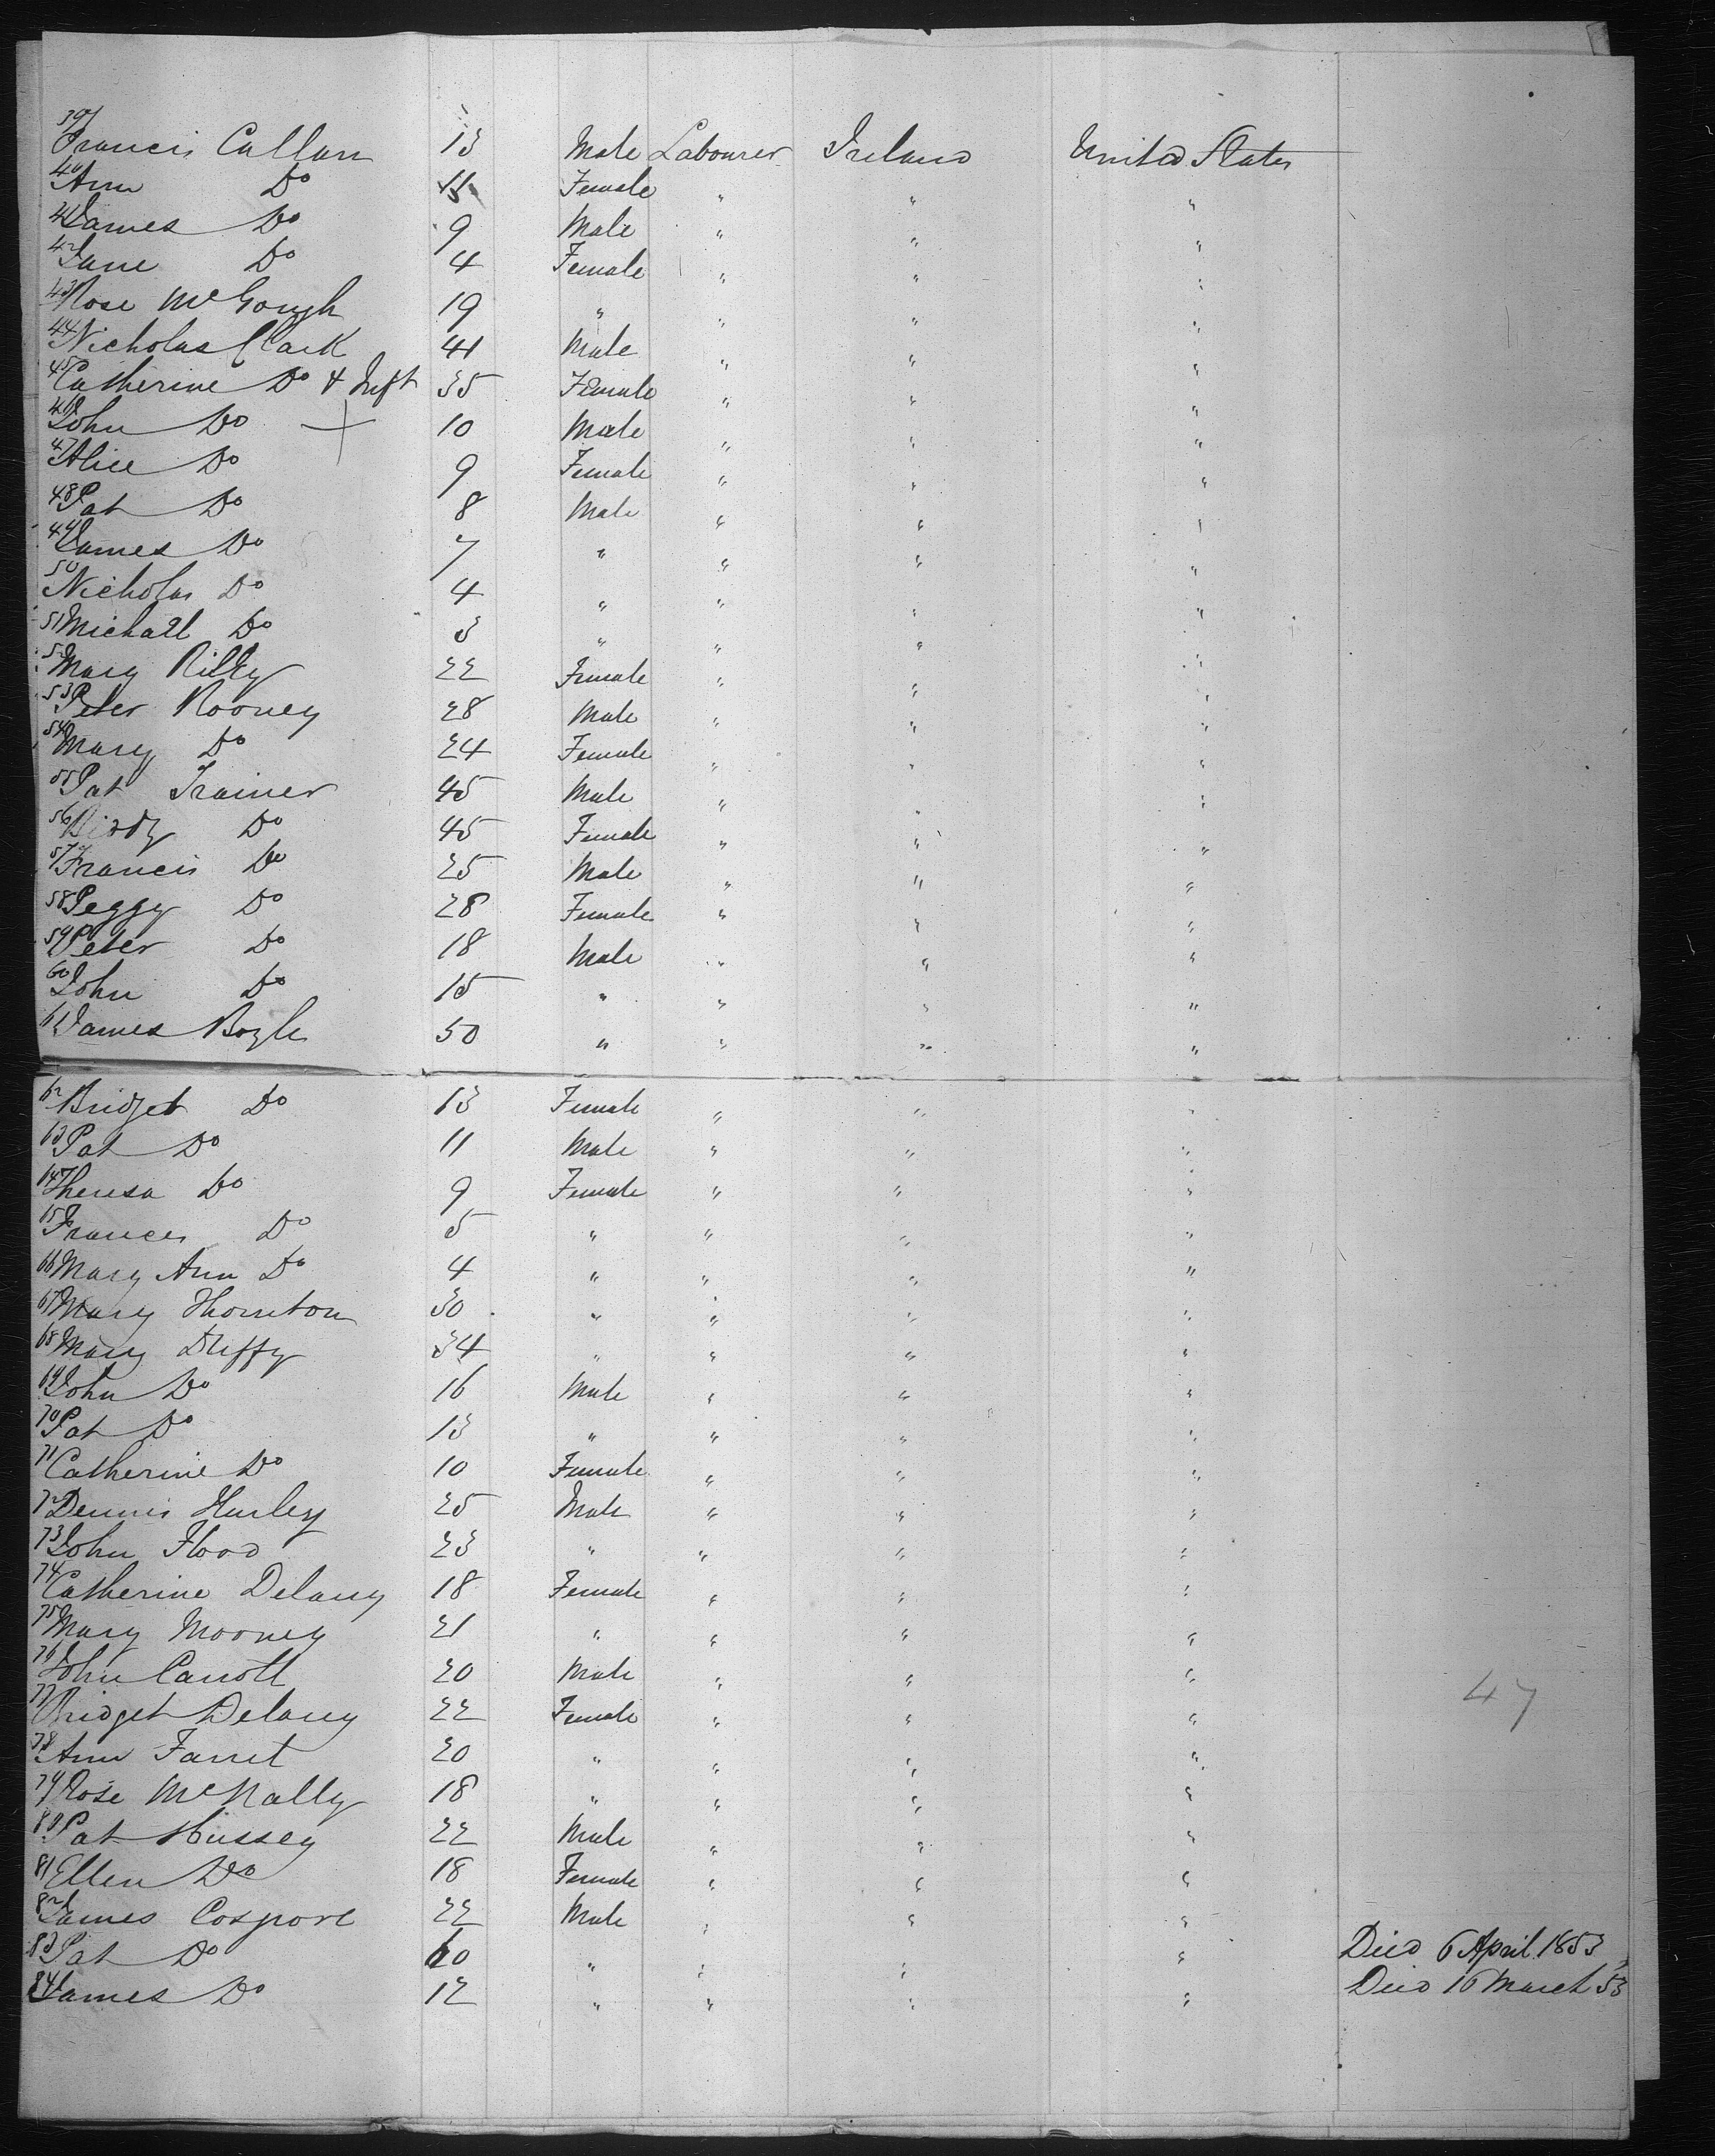 39 Francis Callan 13 Male Labourer Ireland United States
40 Ann Do 11 Female " " "
41 James Do 9 Male " " "
42 Jane Do 4 Female " " "
43 Rose McGough 19 " " " "
44 Nicholas Clark 41 Male " " "
45 Catherine Do & Inft 35 Female " " "
46 John Do 10 Male " " "
47 Alice Do 9 Female " " "
48 Pat Do 8 Male " " "
49 James Do 7 " " " "
50 Nicholas Do 4 " " " "
51 Michall Do 3 " " " "
52 Mary Rilky 22 Female " " "
53 Peter Rooney 28 Male " " "
54 Mary Do 24 Female " " "
55 Pat Trainer 45 Male " " "
56 Biddy Do 45 Female " " "
57 Francis Do 25 Male " " "
58 Peggy Do 28 Female " " "
59 Peter Do 18 Male " " "
60 John Do 15 " " " "
61 James Boyle 50 " " " "
62 Bridget Do 13 Female " " "
63 Pat Do 11 Male " " "
64 Theresa Do 9 Female " " "
65 Frances Do 5 " " " "
66 Mary Ann Do 4 " " " "
67 Mary Thornton 30 " " " "
68 Mary Duffy 34 " " " "
69 John Do 16 Male " " "
70 Pat Do 13 " " " "
71 Catherine Do 10 Female " " "
72 Dennis Hurley 25 Male " " "
73 John Flood 23 " " " "
74 Catherine Delany 18 Female " " "
75 Mary Mooney 21 " " " "
76 John Carroll 20 Male " " "
77 Bridget Delany 22 Female " " "
47
78 Ann Farrel 20 " " " "
79 Rose McNally 18 " " " "
80 Pat Hussey 22 Male " " "
81 Ellen Do 18 Female " " "
82 James Cosgrove 22 Male " " "
83 Pat Do 60 " " " " Died 6 April 1853
84 James Do 12 " " " " Died 16 March 53